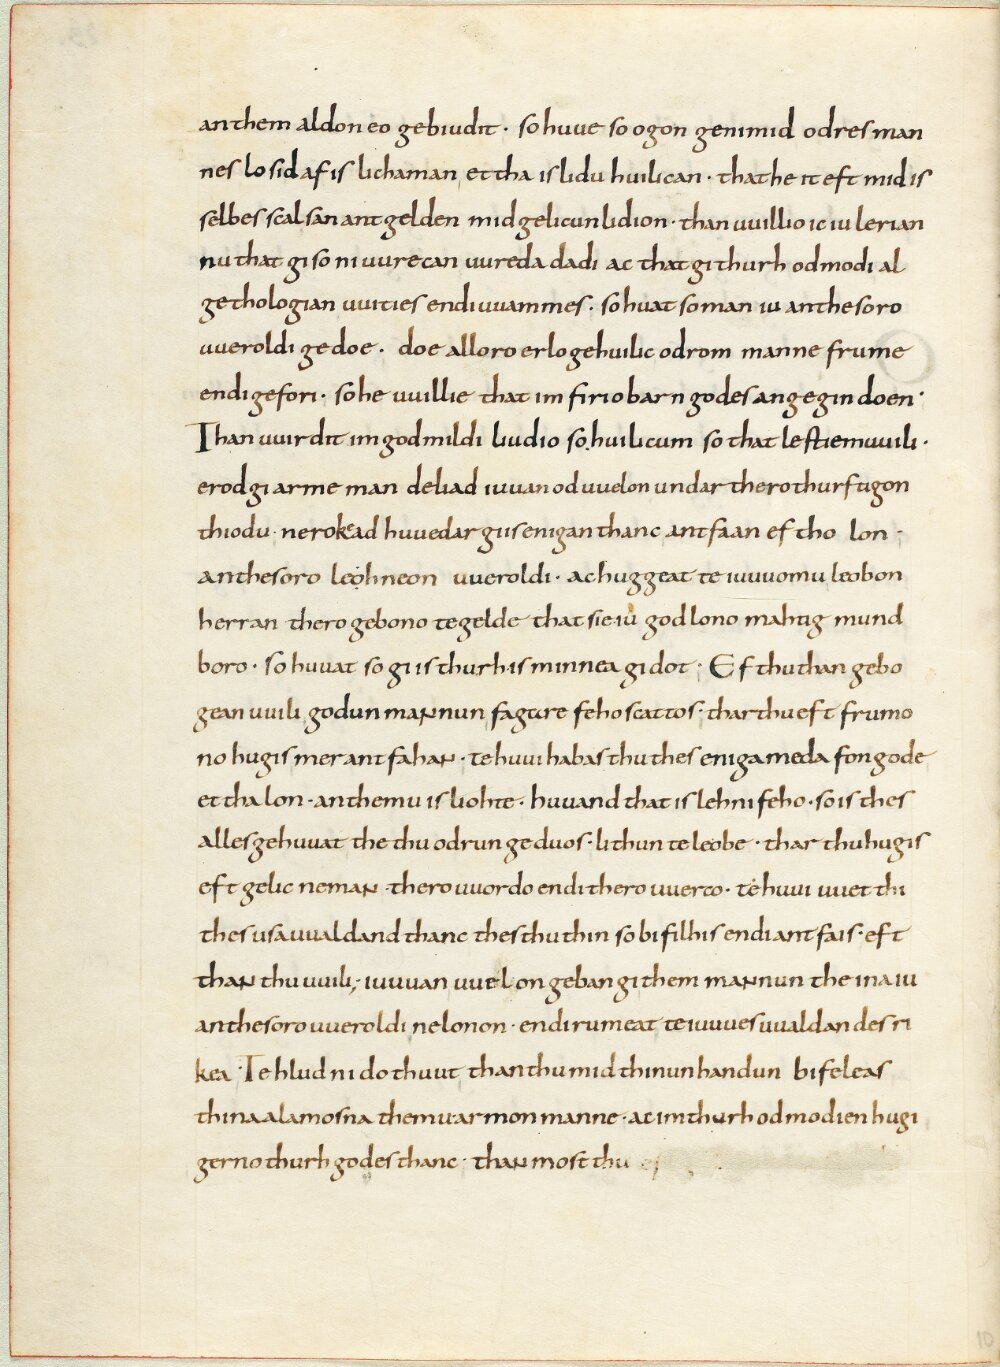 an them aldon eo gebiudit · so huue so ogon genimid odres man
nes lo sid af is lichaman ettha is lidu huilican · that he it eft mid is
selbes scal san antgelden mid gelicun lidion · than uuillio ic iu lerian
nu that gi so ni uurecan uureda dadi ac that gi thurh odmodi al
gethologian uuities endi uuammes · so huat so man iu an thesoro
uueroldi gedoe · doe alloro erlo gehuilic odrom manne frume
endi gefori · so he uuillie that im firio barn godes angegin doen ·
Than uuirdit im god mildi liudio so huilicum so that lestien uuili ·
erod gi arme man deliad iuuan oduuelon undar thero thurftigon
thiodu · ne rokead huuedar gi is enigan thanc antfaan eftho lon
an thesoro leohneon uueroldi · ac huggeat te iuuuomu leobon
herran thero gebono te gelde that sie iu god lono mahtig mund
boro · so huuat so gi is thurh is minnea gidot · Ef thu than gebo
gean uuili godun mannun fagare fehoscattos · thar thu eft frumo
no hugis mer antfahan · te huui habas thu thes eniga meda fon gode
ettha lon · an themu is liohte · huuand that is lehni feho · so is thes
alles gehuuat the thu odrun geduos · lithun te leobe · thar thu hugis
eft gelic neman thero uuordo endi thero uuerco · te huui uuet thi
thes usa uualdand thanc thes thu thin so bifilhis endi antfais · eft
than thu uuili · iuuuan uuelon geban gi them mannun the ina iu
an thesoro uueroldi ne lonon · endi rumeat te iuuues uualdandes ri
kea · Te hlud ni do thu ut than thu mid thinun handun bifeleas
thina alamosna themu armon manne · ac im thurh odmodien hugi
gerno thurh godes thanc · than most thu